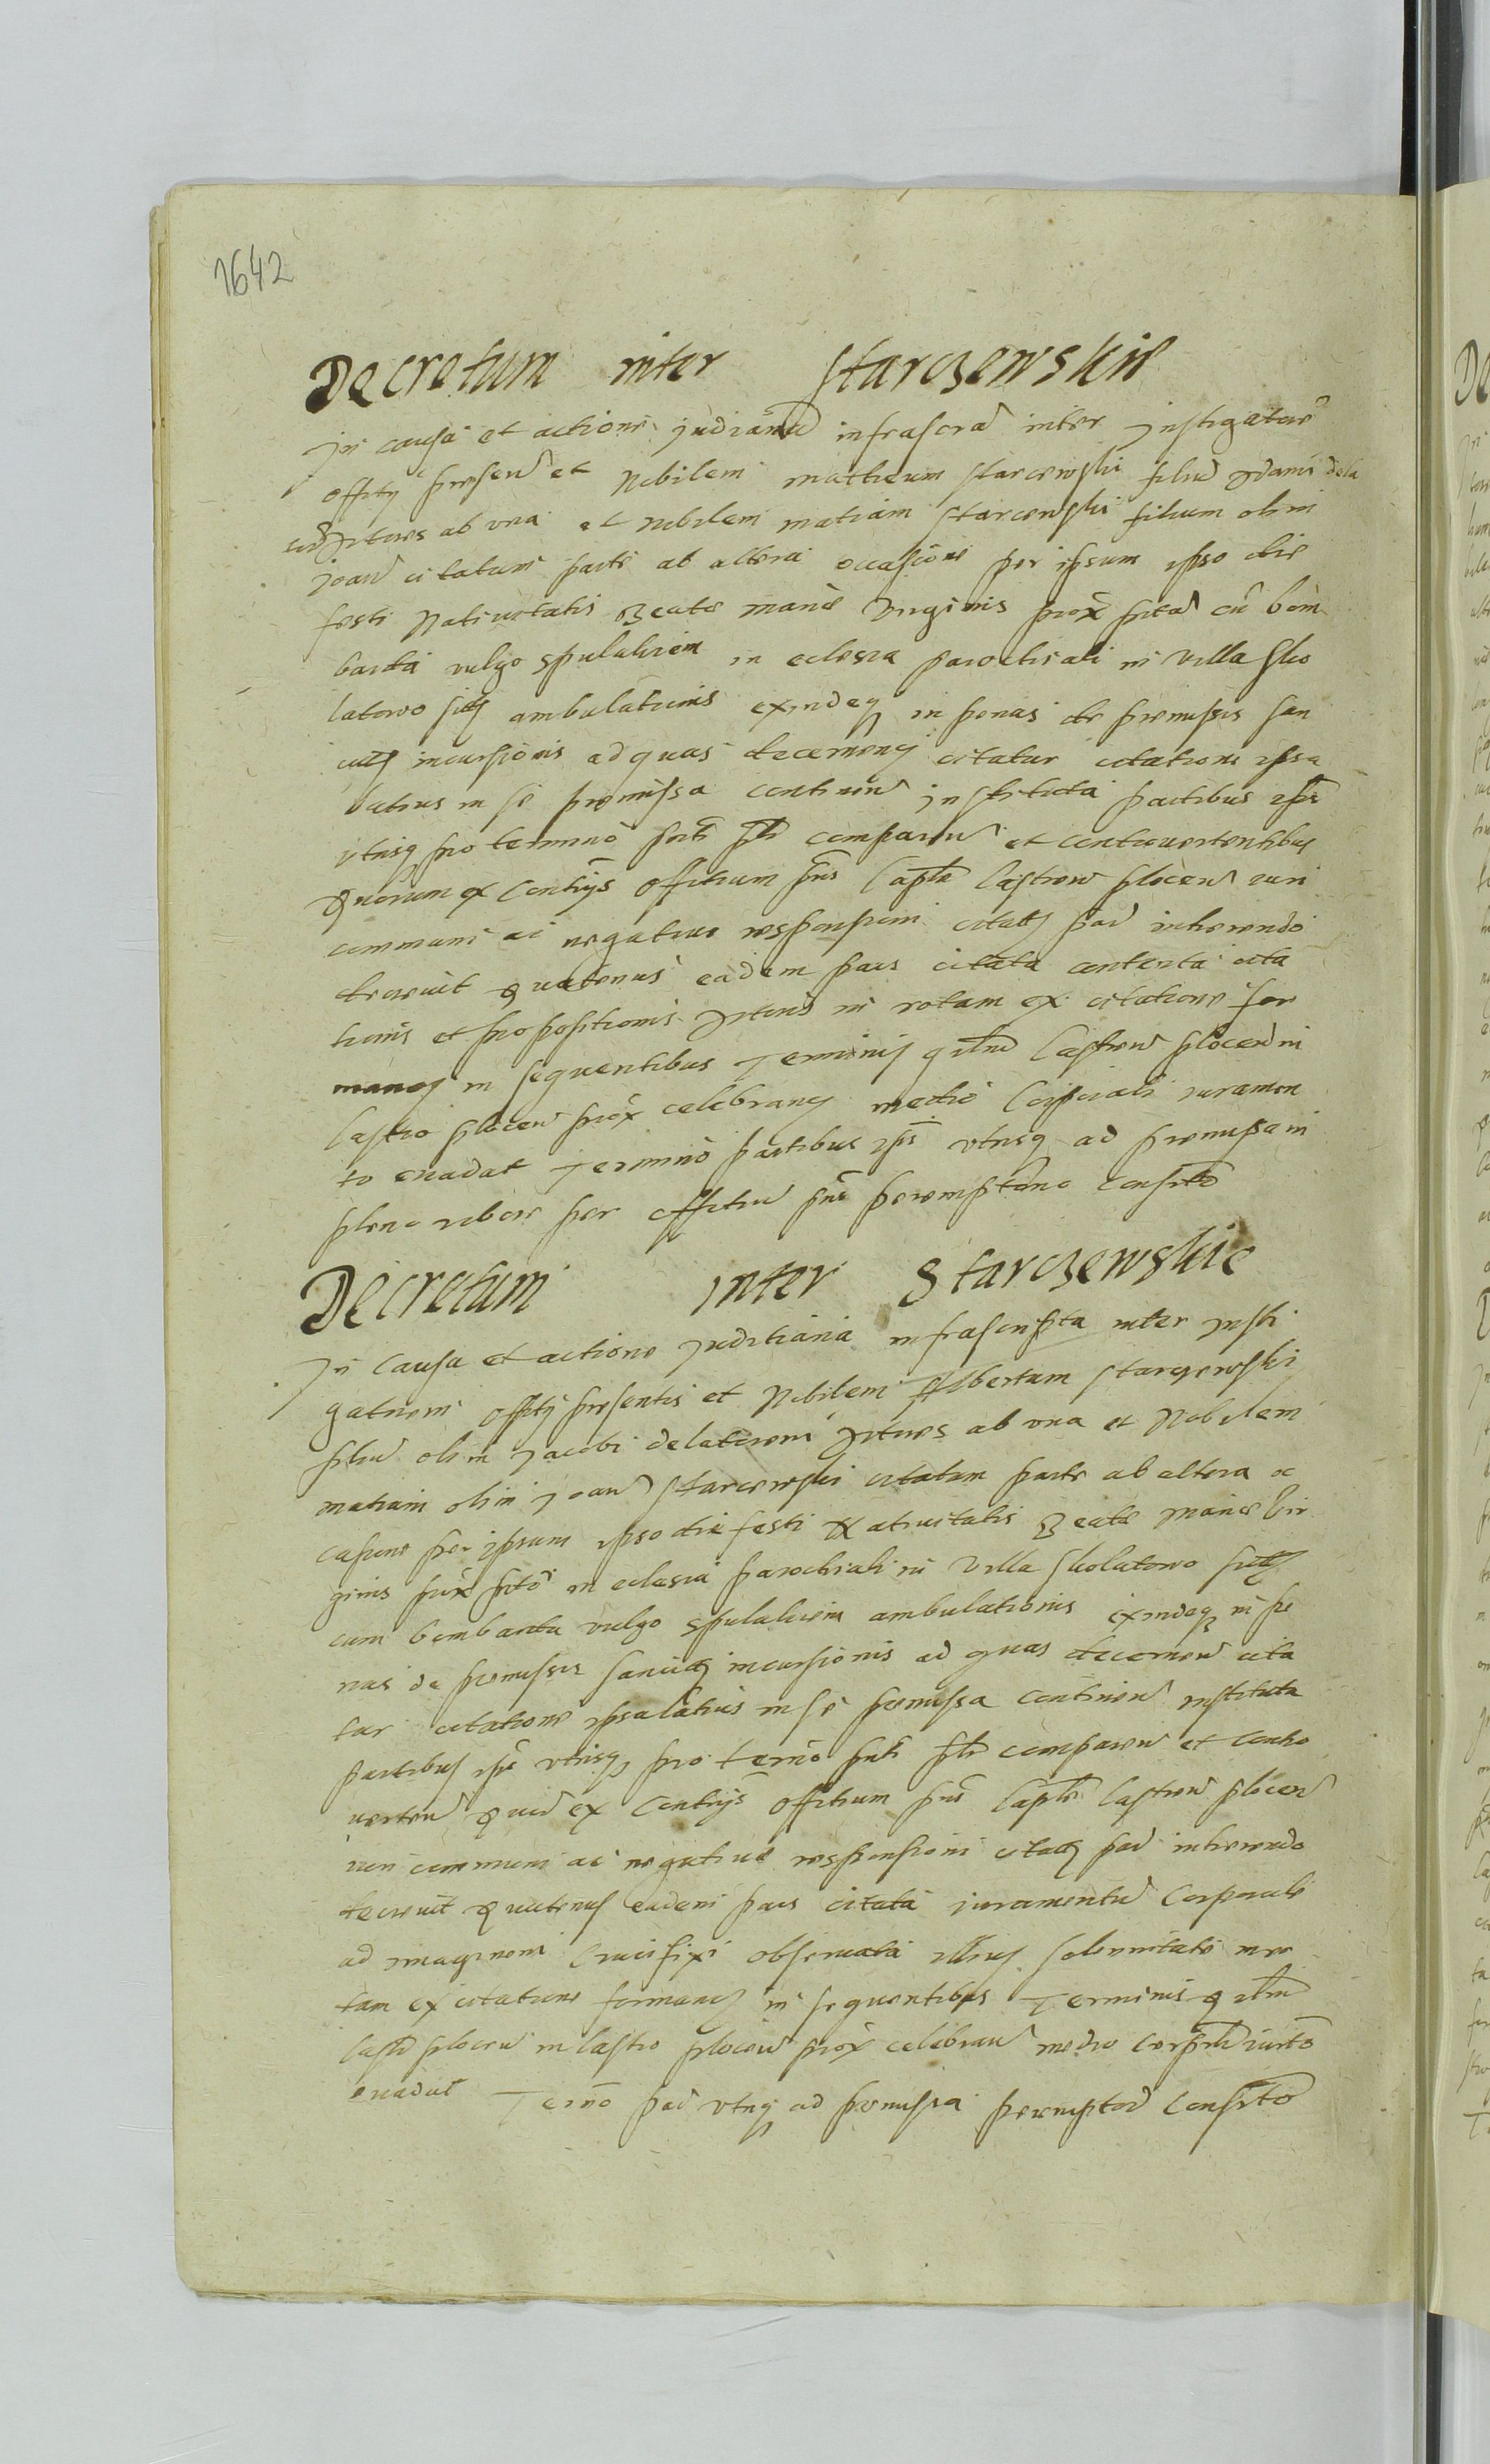 1642
Decretum inter Starczewskie
In causa et actione judiciaria infrascra inter Instigatore
offitÿ presen et Nobilem Matheum Starcewski filiu Adami dela
Actores ab vna et nobilem Matiam Starcewski filium olim
Joan citatum parte ab altera occasione per ipsum ipso die
festi Natiuitatis Beate Marie Virginis prox prita cu bom
barda vulgo spulhakiem in eclesia parochiali in Villa Sko
latowo sitta ambulationis exindeq in penas de premissis san
incursionis ad quas decernen citatur citatione ipsa
latius in se premissa continen instituta partibus ipis
vtrisq pro termino pnti comparen et controuertentibus
Quorum ex Contrijs Offitium pns Caple Castren plocen iuri
communi ac negatiue responsioni citate par inherendo
decreuit quatenus eadem pars citata contenta cita
tionis et propositionis Actoris in rotam ex citatione for
manda in sequentibus Terminis qrlm Castren plocen in
Castro plocen prox celebran medio Corporali iuramen
to euadat Termino partibus ipis vtrisq ad premissam
pleno robore per offitiu pns peremptorio conseruato
Decretum Inter Starczewskie
In causa et actione Juditiaria infrascripta inter Insti
gatorem offitÿ presentis et Nobilem Albertum Starczewski
filiu olim Jacobi delatorem Actores ab vna et Nobilem
Matiam olim Joan Starcewski citatum parte ab altera oc
casione per ipsum ipso die festi Natiuitatis Beate Marie Vir
ginis prox prito in eclesia parochiali in Villa Skolatowo sitta
cum bombarda vulgo spulhakiem ambulationis exindeq in pe
nas de premissis incursionis ad quas decernen cita
tur citatione ipsa latius in se premissa continen instituta
partibus ipis vtrisq pro termo pnti comparen et contro
uerten Quoru ex Contrijs Offitium pns Caple Castren plocen
iuri communi ac negatiue responsioni citate par inherendo
decreuit quatenus eadem pars citata iuramentu Corporale
ad imaginem Crucifixi obseruata illius solennitate in ro
tam ex citatione formanda in sequentibus Terminis qrlm
Castr plocen in Castro plocen prox celebran medio corprli iurto
euadat Termo par vtriq ad premissa peremptor conserto